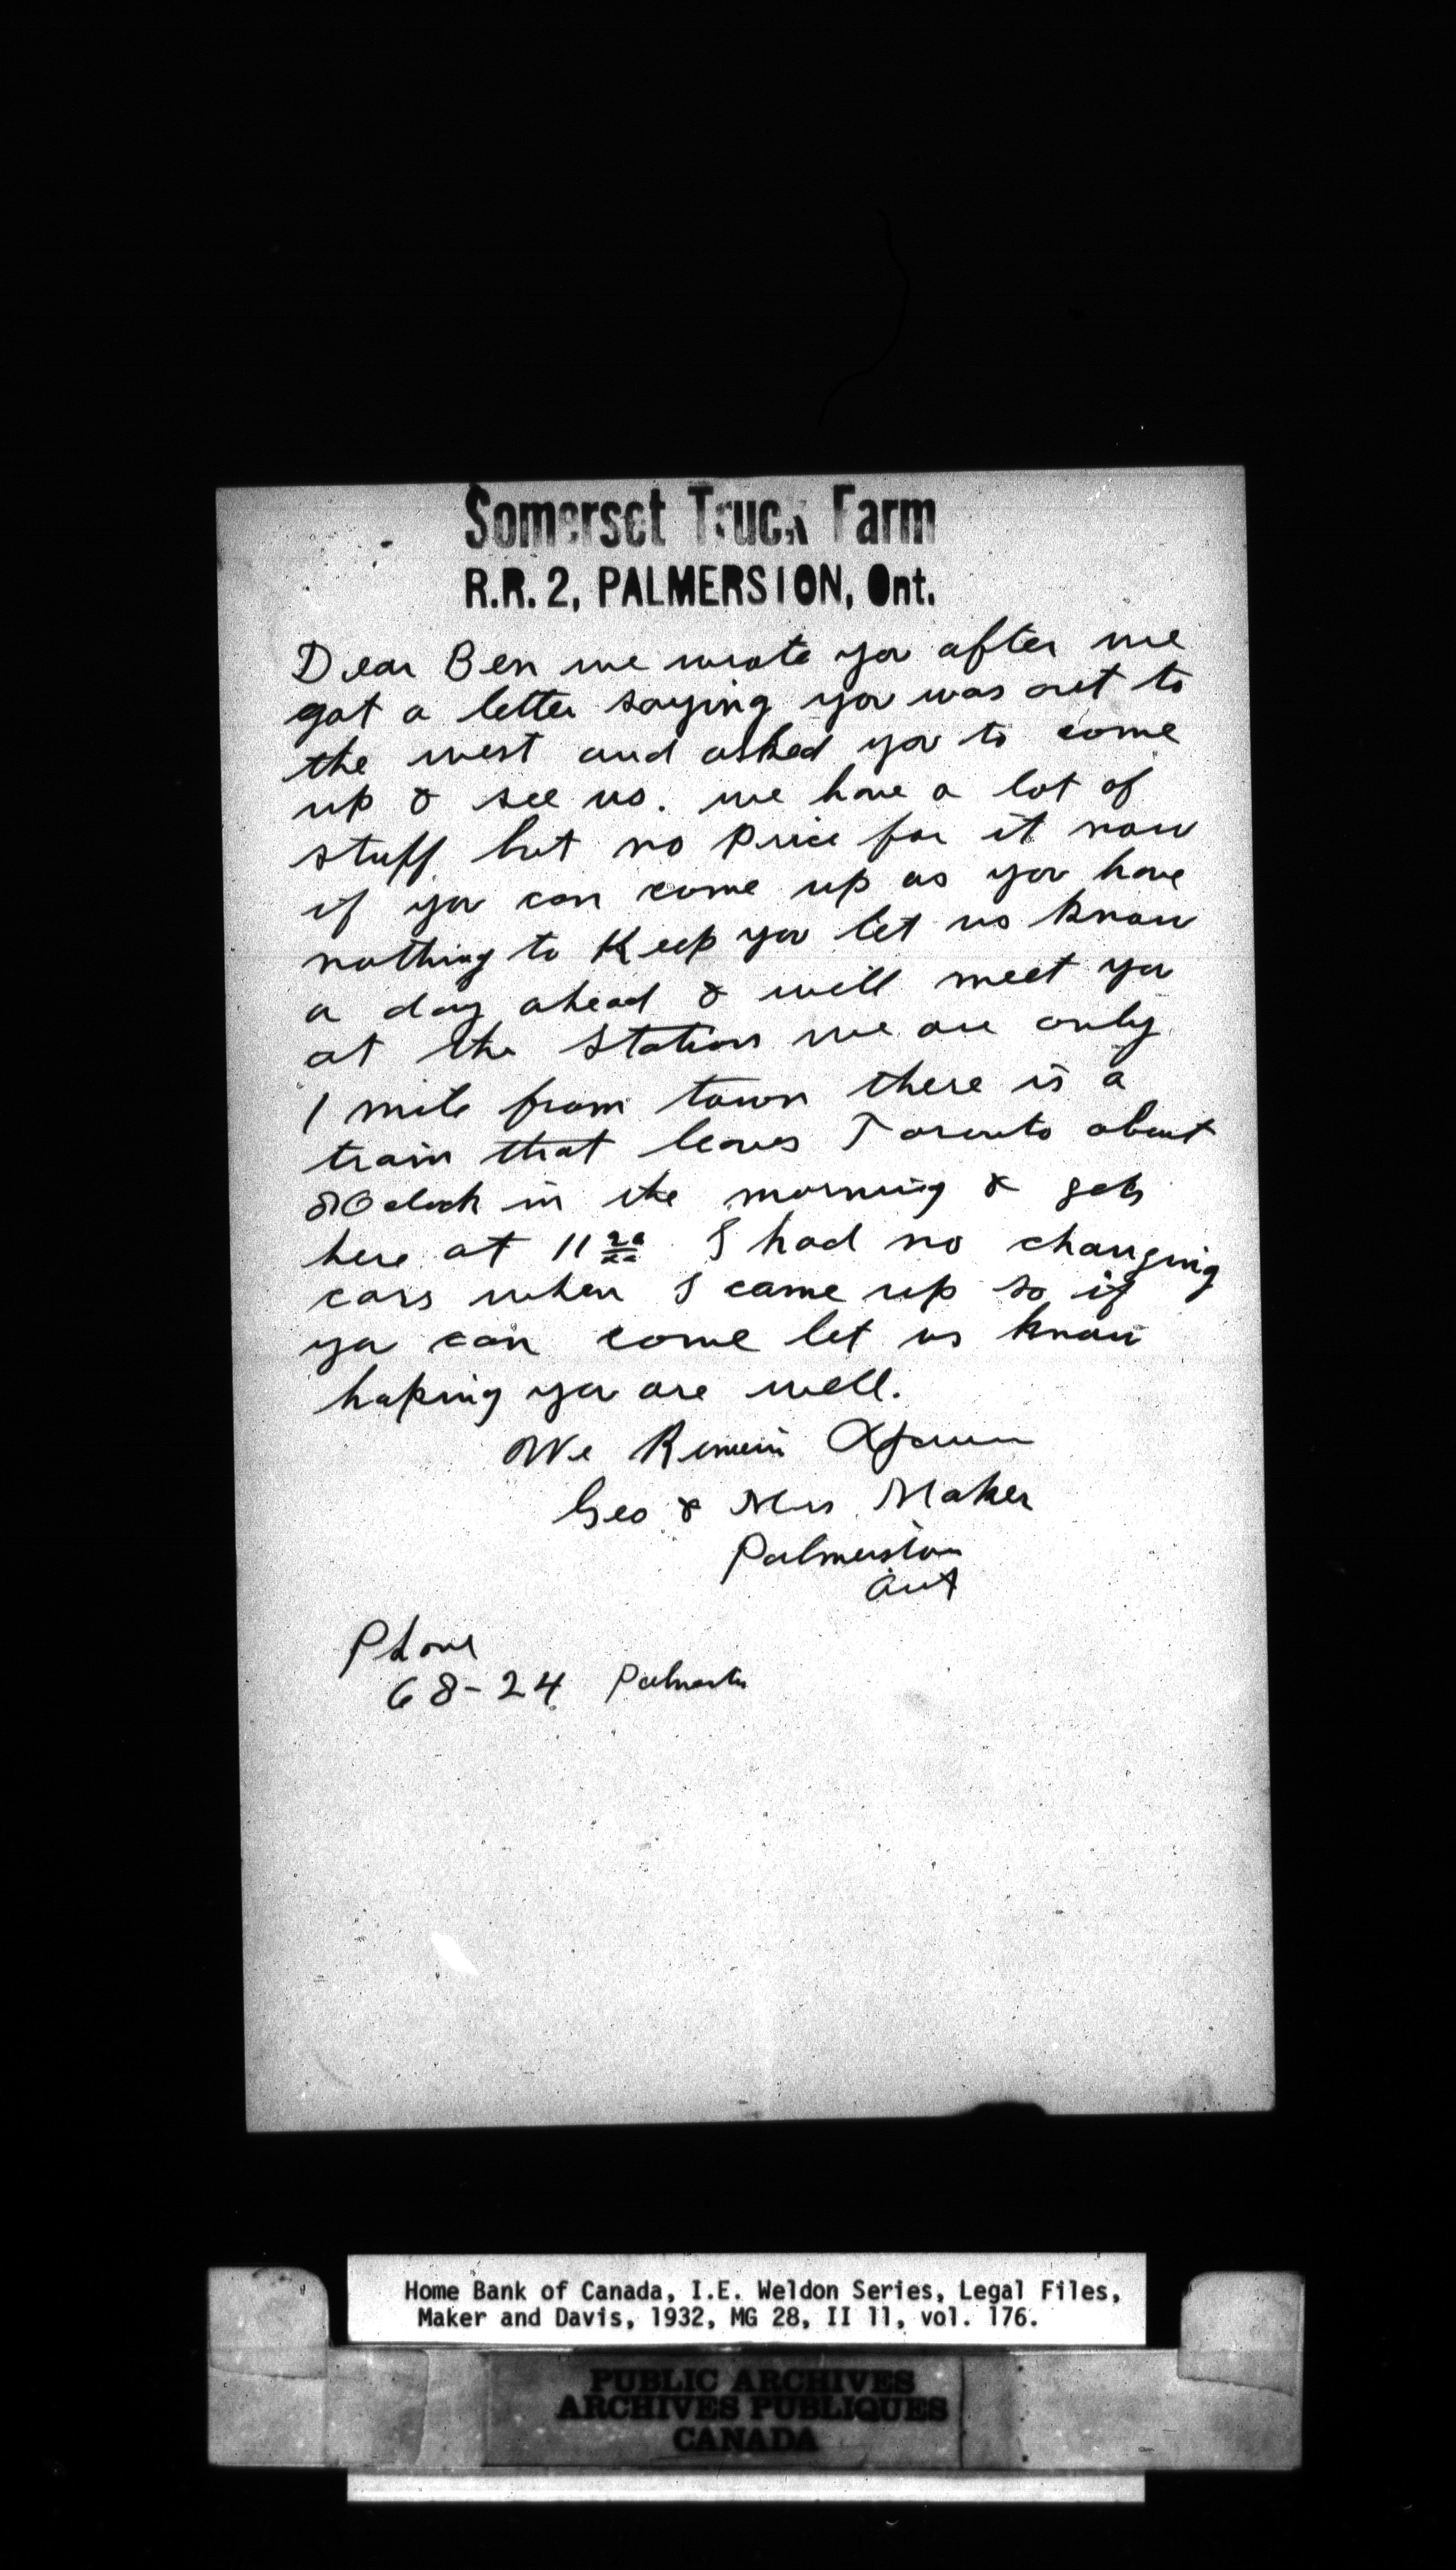 Somerset Truck Farm
R.R. 2, PALMERSTON, Ont.
Dear Ben we wrote you after we
got a letter saying you was out to
the west and asked you to come
up & see us. we have a lot of
stuff but no Price for it now
if you can come up as you have
nothing to Keep you let us know
a day ahead & will meet you
at the Station we are only
1 mile from town there is a
train that leaves Toronto about
8 Oclock in the morning & gets
here at 11 20 I had no changing
cars when I came up so if
you can come let us know
hoping you are well.
We Remain
Geo & Mrs Maker
Palmerston
Ont
Phone
68-24 Palmerston
Home Bank of Canada, I.E. Weldon Series, Legal Files,
Maker and Davis, 1932, MG 28, II 11, vol. 176.
PUBLIC ARCHIVES
ARCHIVES PUBLIQUES
CANADA